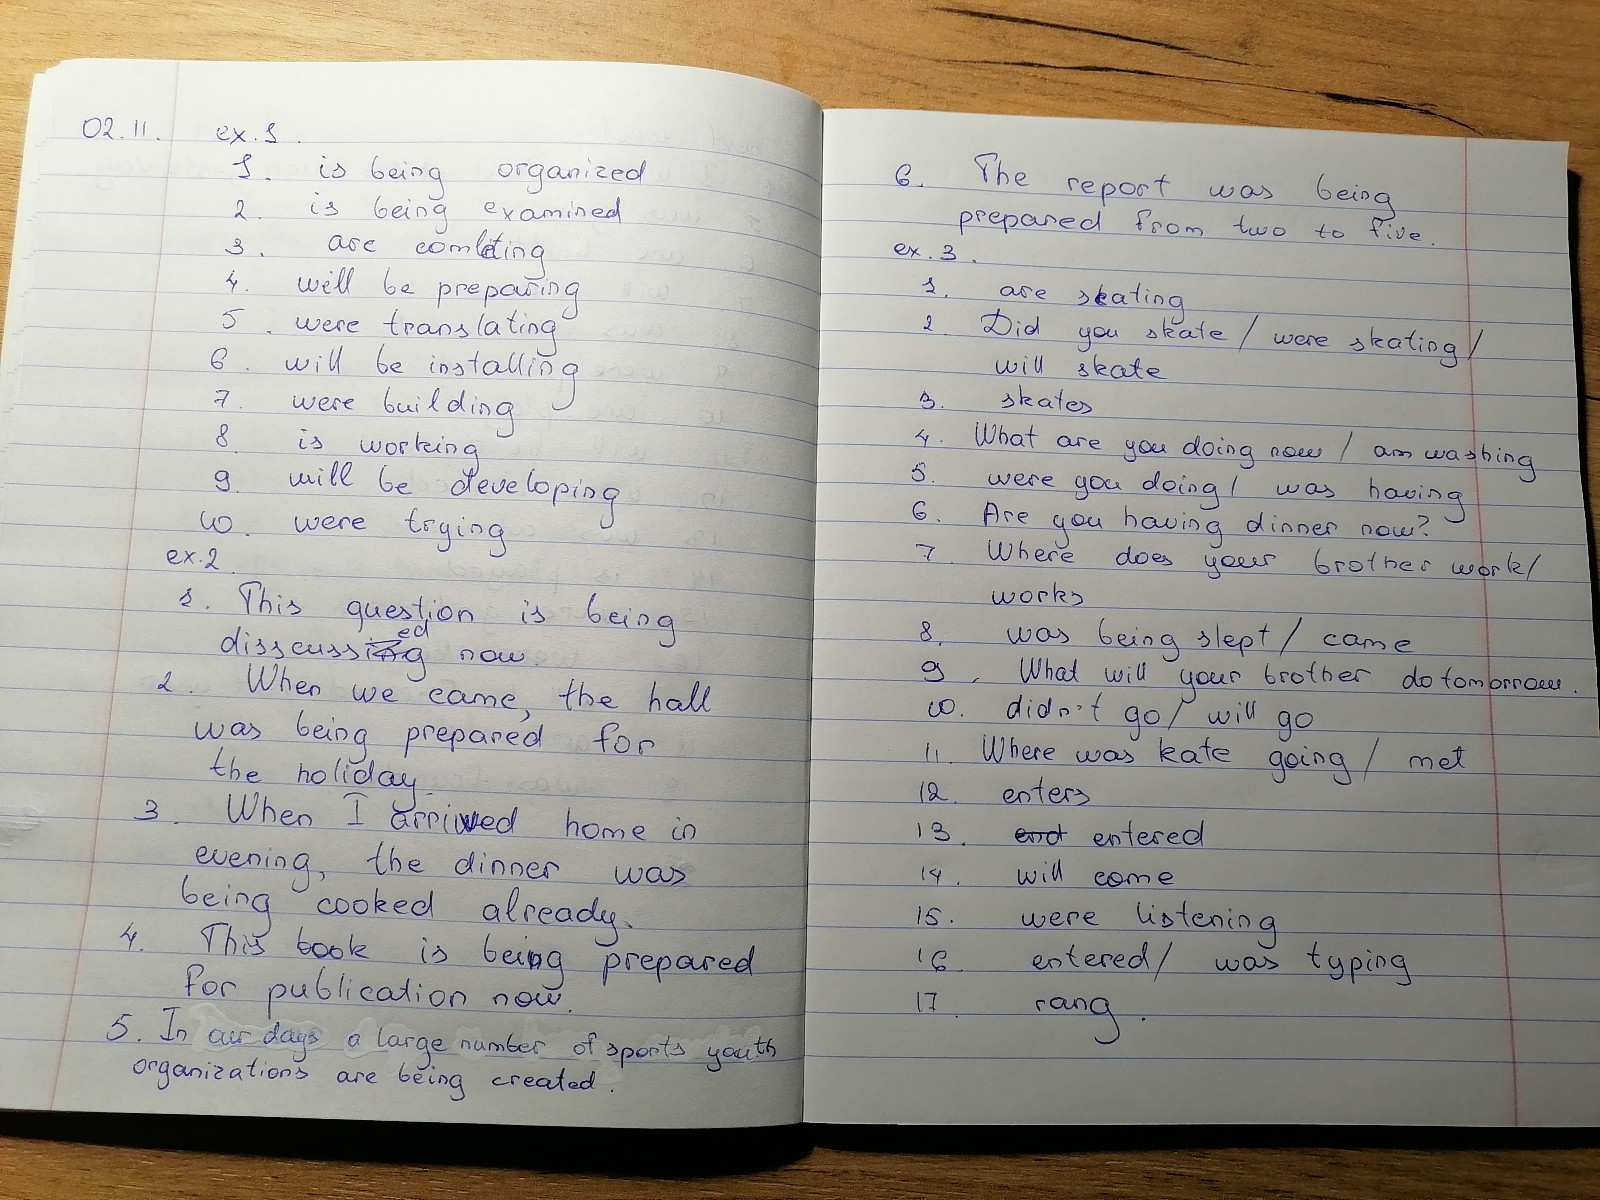 02.11. ex.1.
1. is being organized
2. is being examined
3. are comleting
4. will be preparing
5. were translating
6. will be installing
7. were building
8. is working
9. will be developing
10. were trying
ex.2.
1. This question is being
disscussed now
2. When we came, the hall
was being prepared for
the holiday.
3. When I arrived home in
evening, the dinner was
being cooked already.
4. This book is being prepared
for publication now.
5. In our days a large number of sports youth
organizations are being created.
6. The report was being
prepared from two to five.
ex.3.
1. are skating
2. Did you skate / were skating /
will skate
3. skates
4. What are you doing now / am washing
5. were you doing / was having
6. Are you having dinner now?
7. Where does your brother work/
works
8. was being slept / came
9. What will your brother do tomorrow.
10. didn't go / will go
11. Where was kate going / met
12. enters
13. entered
14. will come
15. were listening
16. entered / was typing
17. rang.